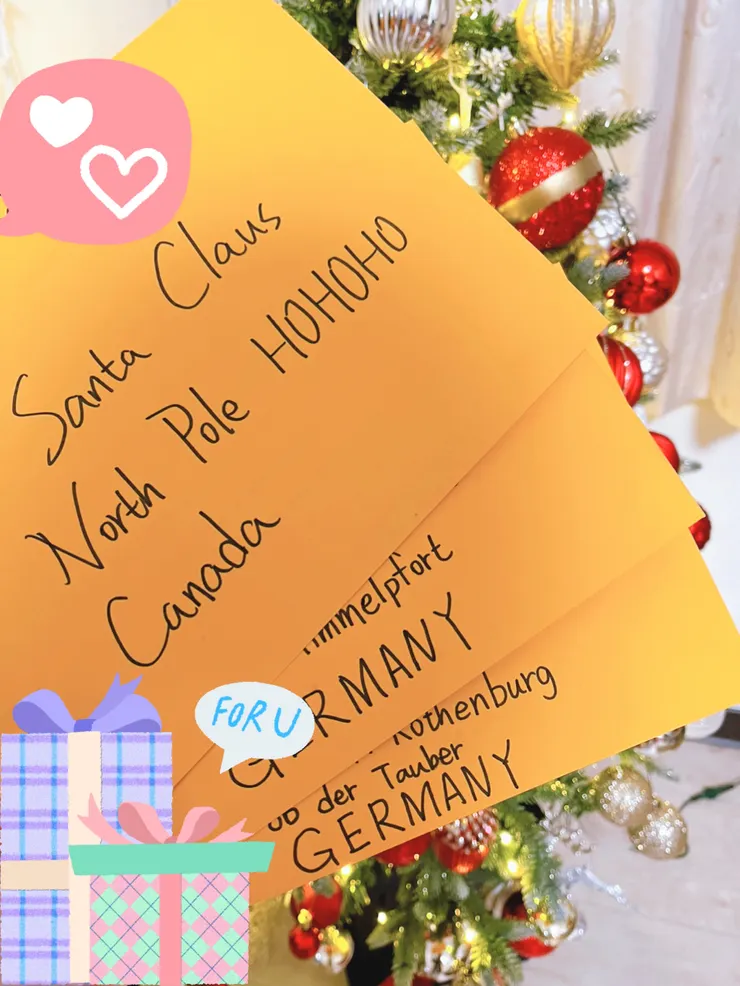 Santa Claus
North Pole HOHOHO
Canada
mmelpfort
GERMANY
FOR U
Rothenburg
ob der Tauber
GERMANY